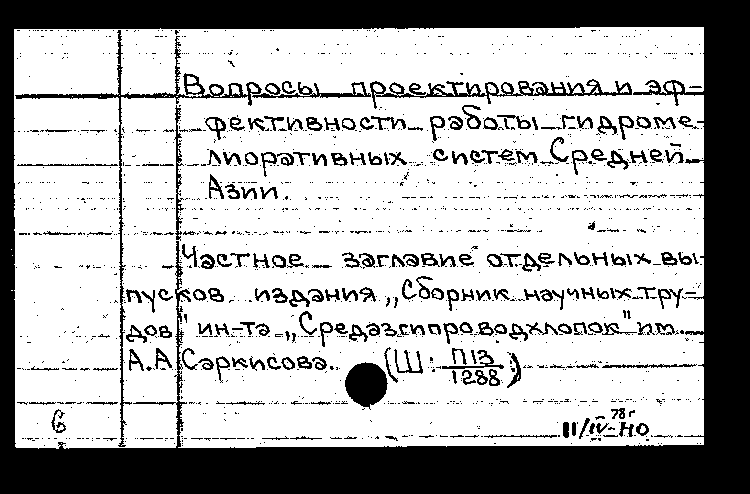 Вопросы проектирования и эф-
фективности работы гидроме-
лиоративных систем Средней
Азии.
Частное заглавие отдельных вы-
пусков издания „Сборник научных тру-
дов" ин-та „Средазгипроводхлопок" им.
А.А Саркисова. (Ш: П13
1288)
6
78 г
11/IV-НО